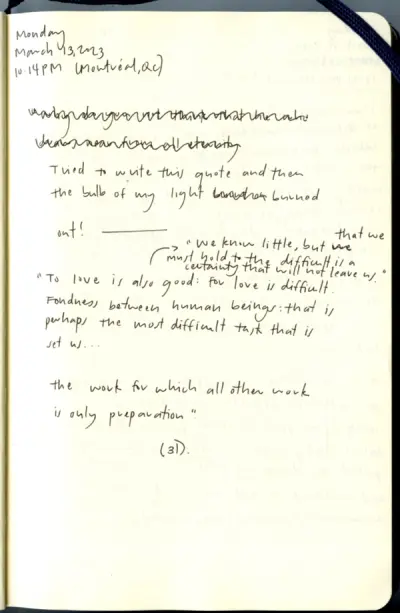 Monday
March 13, 2023
10:14 PM (Montréal, Qc)
Tried to write this quote and then
the bulb of my light burned
out!
"we know little, but that we
must hold to the difficult is a
certainty that will not leave us."
"To love is also good: for love is difficult.
Fondness between human beings: that is
perhaps the most difficult task that is
set us...
the work for which all other work
is only preparation"
(31).